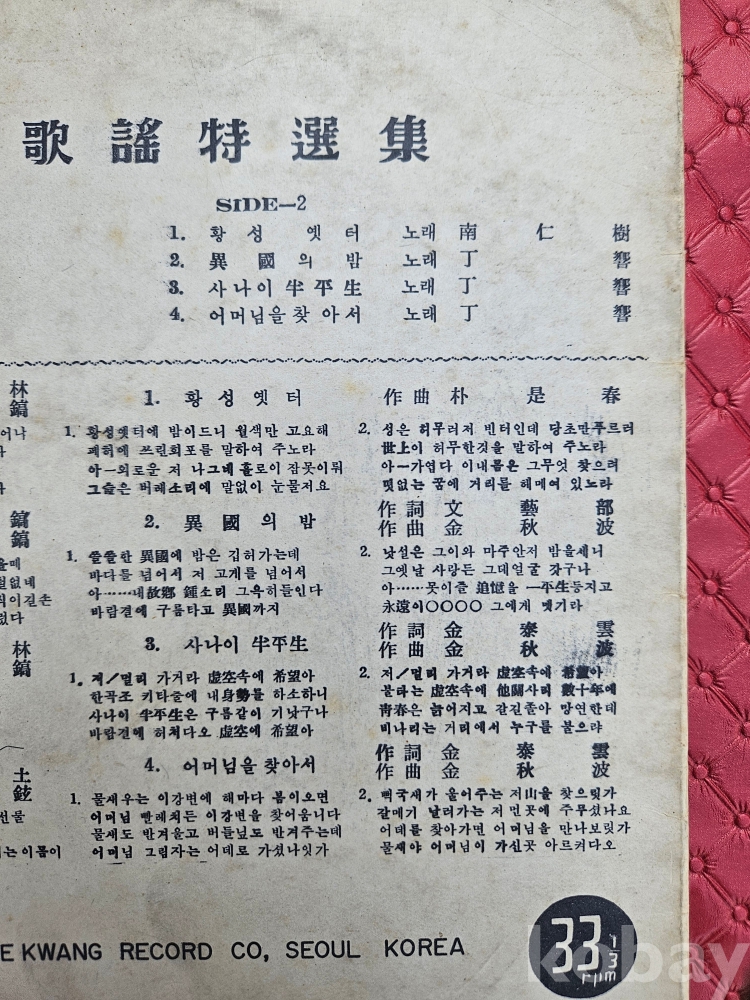 歌謠特選集
SIDE—2
1. 황성 옛터 노래 南仁樹
2. 異國의밤 노래 丁響
3. 사나이 半平生 노래 丁響
4. 어머님을찾아서 노래 丁響
林
鎬
어나
1. 황성옛터 作曲 朴是春
1. 황성옛터에 밤이드니 월색만 고요해
폐허에 쓰린회포를 말하여 주노라
아—외로운 저 나그네 홀로이 잠못이뤄
그슬은 버레소리에 말없이 눈물지요
2. 성은 허무러저 빈터인데 당초만푸르러
世上이 허무한것을 말하여 주노라
아—가엽다 이내몸은 그무엇 찾으려
띳없는 꿈에 거리를 헤메여 있노라
鎬
鎬
을메
럴없네
띄이길손
렀다
2. 異國의밤
作詞 文藝部
作曲 金秋波
1. 쓸쓸한 異國에 밤은 깁허가는데
바다를 넘어서 저 고개를 넘어서
아……내故鄕 鍾소리 그윽히들인다
바람결에 구름타고 異國까지
2. 낮설은 그이와 마주안저 밤을세니
그옛날 사랑든 그데얼굴 갓구나
아……못이즐 追憶을 一平生등지고
永遠이〇〇〇〇 그에게 멧기라
林
鎬
3. 사나이 半平生
作詞 金泰雲
作曲 金秋波
1. 저/멀리 가거라 虛空속에 希望아
한곡조 키타줄에 내身勢를 하소하니
사나이 半平生은 구름같이 기낫구나
바람결에 허처다오 虛空에 希望아
2. 저/멀리 가거라 虛空속에 希望아
물타는 虛空속에 他關사리 數十年에
靑春은 늙어지고 갈길좁아 망연한데
비나리는 거리에서 누구를 불으랴
土
鉉
선물
는이름이
4. 어머님을찾아서
作詞 金泰雲
作曲 金秋波
1. 물새우는 이강변에 해마다 봄이오면
어머님 빨레처든 이강변을 찾어옵니다
물새도 반겨울고 버들닢도 반겨주는데
어머님 그림자는 어데로 가셨나잇가
2. 뻐국새가 울어주는 저山을 찾으릿가
갈메기 날러가는 저먼곳에 주무셨나요
어데를 찾아가면 어머님을 만나보릿가
물새야 어머님이 가신곳 아르켜다오
E KWANG RECORD CO, SEOUL KOREA
33 1/3 rpm
kobay